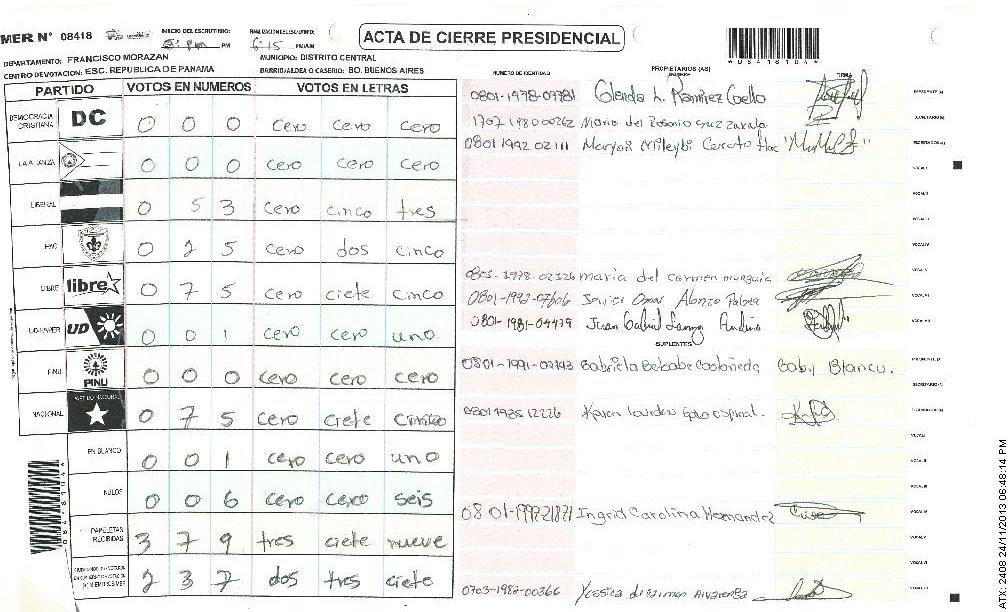 MER N° 08418
INICIO DEL ESCRUTINIO: PM
6:15 PM/AM
ACTA DE CIERRE PRESIDENCIAL
*08418104*
DEPARTAMENTO: FRANCISCO MORAZAN
MUNICIPIO: DISTRITO CENTRAL
CENTRO DE VOTACION: ESC. REPUBLICA DE PANAMA
BARRIO/ALDEA O CASERIO: BO. BUENOS AIRES
PARTIDO VOTOS EN NUMEROS VOTOS EN LETRAS
NUMERO DE IDENTIDAD PROPIETARIOS (AS) NOMBRE FIRMA
DEMOCRACIA CRISTIANA DC 0 0 0 cero cero cero
LA ALIANZA 0 0 0 cero cero cero
LIBERAL 0 53 cero cinco tres
PAC 0 2 5 cero dos cinco
LIBRE libre 0 7 5 cero ciete cinco
UD-FAPER UD 0 0 1 cero cero uno
PINU PINU 0 0 0 cero cero cero
NACIONAL PARTIDO NACIONAL 0 7 5 cero ciete cinco
EN BLANCO 0 0 1 cero cero uno
NULOS 0 0 6 cero cero seis
PAPELETAS RECIBIDAS 3 7 9 tres ciete nueve
2 3 7 dos tres ciete
0801-1978-09781 Glenda L. Ramirez Coello PRESIDENTE (A)
1707 1980 00262 Maria del Rosario Cruz Zavala SECRETARIO (A)
0801 1992 02111 Maryori Mileybi Cerrato ESCRUTADOR (A)
VOCAL I
VOCAL II
VOCAL III
VOCAL IV
maria del carmen VOCAL V
0801-1992-07606 Omar Alonzo VOCAL VI
0801-1981-04479 Juan Gabriel Andino VOCAL VII
SUPLENTES
0801-1991-02793 Gabriela Betsabe Castañeda Gaby Blanco. PRESIDENTE (A)
SECRETARIO (A)
0801 1985 12226 Karen Lourdes espinal. ESCRUTADOR (A)
VOCAL I
VOCAL II
VOCAL III
Ingrid Carolina Hernandez VOCAL IV
VOCAL V
VOCAL VI
0703-1982-00366 Yessica VOCAL VII
*08418104*
ATX: 2408 24/11/2013 06:48:14 PM